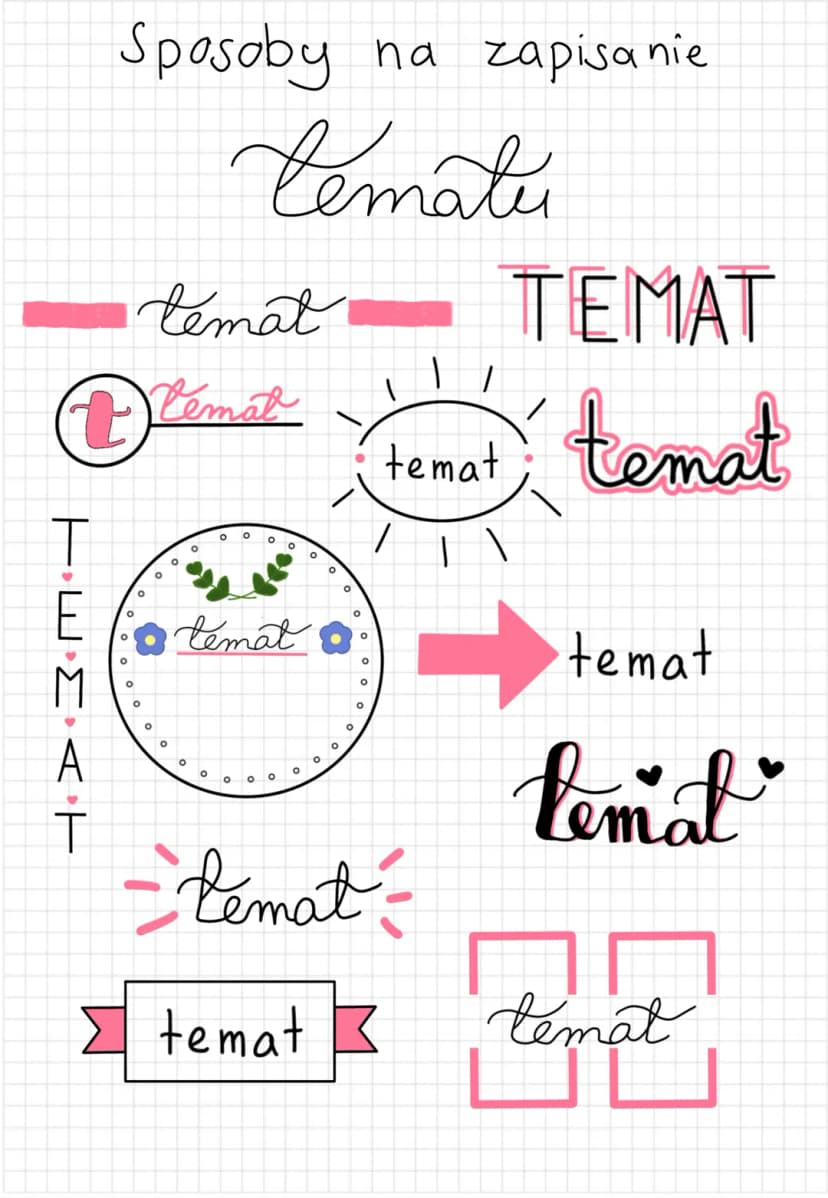 Sposoby na zapisanie
tematu
temat
TEMAT
t temat
temat
temat
TEMAT
temat
temat
temat
temat
temat
temat